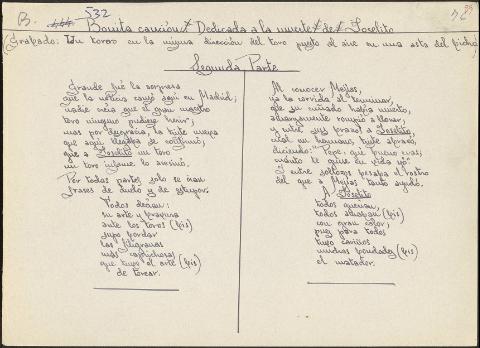 B. 532
Bonita canción Dedicada a la muerte de Joselito
(Grabado: Un torero en la misma dirección del toro puesto al aire en una asta del bicho)
Segunda Parte
Grande fué la sorpresa
que la noticia causó aquí en Madrid;
nadie creía que el gran maestro
toro ninguno pudiera herir;
mas por desgracia, la triste nueva
que aquí llegaba se confirmó,
que a Joselito un toro
un toro infame lo asesinó.
Por todas partes solo se oían
frases de duda y de estupor.
Todos decían:
su arte y bravura
ante los toros (bis)
supo bordar
las filigranas
más caprichosas
que tuvo el arte (bis)
de torear.
Al conocer Mejías,
ya la corrida al terminar,
que su cuñado había muerto,
amargamente rompió a llorar;
y entre sus brazos a Joselito,
cual un hermano, triste abrazó,
diciendo: "Pepe, qué bueno eras;
cuánto te quise en vida yo"
Y entre sollozos besaba el rostro
del que a Mejías tanto ayudó.
A Joselito
todos querían,
todos (bis)
con gran calor;
pues para todos
tuvo cariños
muchas bondades (bis)
el matador.